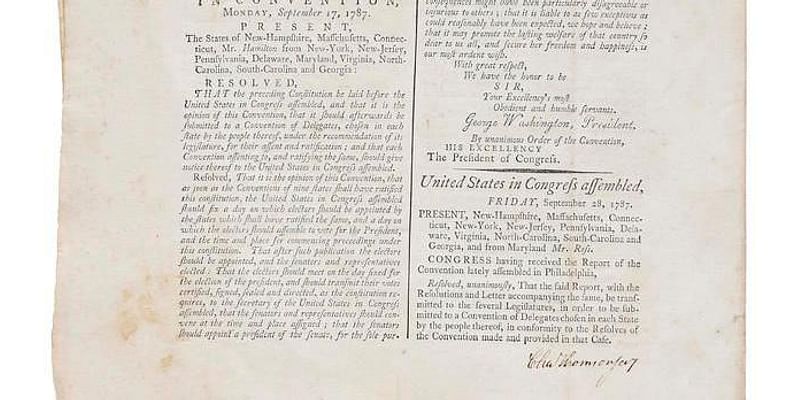 IN CONVENTION,
MONDAY, September 17, 1787.
PRESENT,
The States of New-Hampſhire, Maſſachuſetts, Connec-
ticut, Mr. Hamilton from New-York, New-Jerſey,
Pennſylvania, Delaware, Maryland, Virginia, North-
Carolina, South-Carolina and Georgia:
RESOLVED,
THAT the preceding Conſtitution be laid before the
United States in Congreſs aſſembled, and that it is the
opinion of this Convention, that it ſhould afterwards be
ſubmitted to a Convention of Delegates, choſen in each
ſtate by the people thereof, under the recommendation of its
legiſlature, for their aſſent and ratification; and that each
Convention aſſenting to, and ratifying the ſame, ſhould give
notice thereof to the United States in Congreſs aſſembled.
Reſolved, That it is the opinion of this Convention, that
as ſoon as the Conventions of nine ſtates ſhall have ratified
this conſtitution, the United States in Congreſs aſſembled
ſhould fix a day on which electors ſhould be appointed by
the ſtates which ſhall have ratified the ſame, and a day on
which the electors ſhould aſſemble to vote for the Preſident,
and the time and place for commencing proceedings under
this conſtitution. That after ſuch publication the electors
ſhould be appointed, and the ſenators and repreſentatives
elected: That the electors ſhould meet on the day fixed for
the election of the preſident, and ſhould tranſmit their votes
certified, ſigned, ſealed and directed, as the conſtitution re-
quires, to the ſecretary of the United States in Congreſs
aſſembled, that the ſenators and repreſentatives ſhould con-
vene at the time and place aſſigned; that the ſenators
ſhould appoint a preſident of the ſenate, for the ſole pur-
conſequences might have been particularly diſagreeable or
injurious to others; that it is liable to as few exceptions as
could reaſonably have been expected, we hope and believe:
that it may promote the laſting welfare of that country ſo
dear to us all, and ſecure her freedom and happineſs, is
our moſt ardent wiſh.
With great reſpect,
We have the honor to be
SIR,
Your Excellency's moſt
Obedient and humble ſervants.
George Washington, Preſident.
By unanimous Order of the Convention,
HIS EXCELLENCY
The Preſident of Congreſs.
United States in Congreſs aſſembled,
FRIDAY, September 28, 1787.
PRESENT, New-Hampſhire, Maſſachuſetts, Connec-
ticut, New-York, New-Jerſey, Pennſylvania, Dela-
ware, Virginia, North-Carolina, South-Carolina and
Georgia, and from Maryland Mr. Roſs.
CONGRESS having received the Report of the
Convention lately aſſembled in Philadelphia,
Reſolved, unanimouſly, That the ſaid Report, with the
Reſolutions and Letter accompanying the ſame, be tranſ-
mitted to the ſeveral Legiſlatures, in order to be ſub-
mitted to a Convention of Delegates choſen in each State
by the people thereof, in conformity to the Reſolves of
the Convention made and provided in that Caſe.
Chas Thomson ſecy